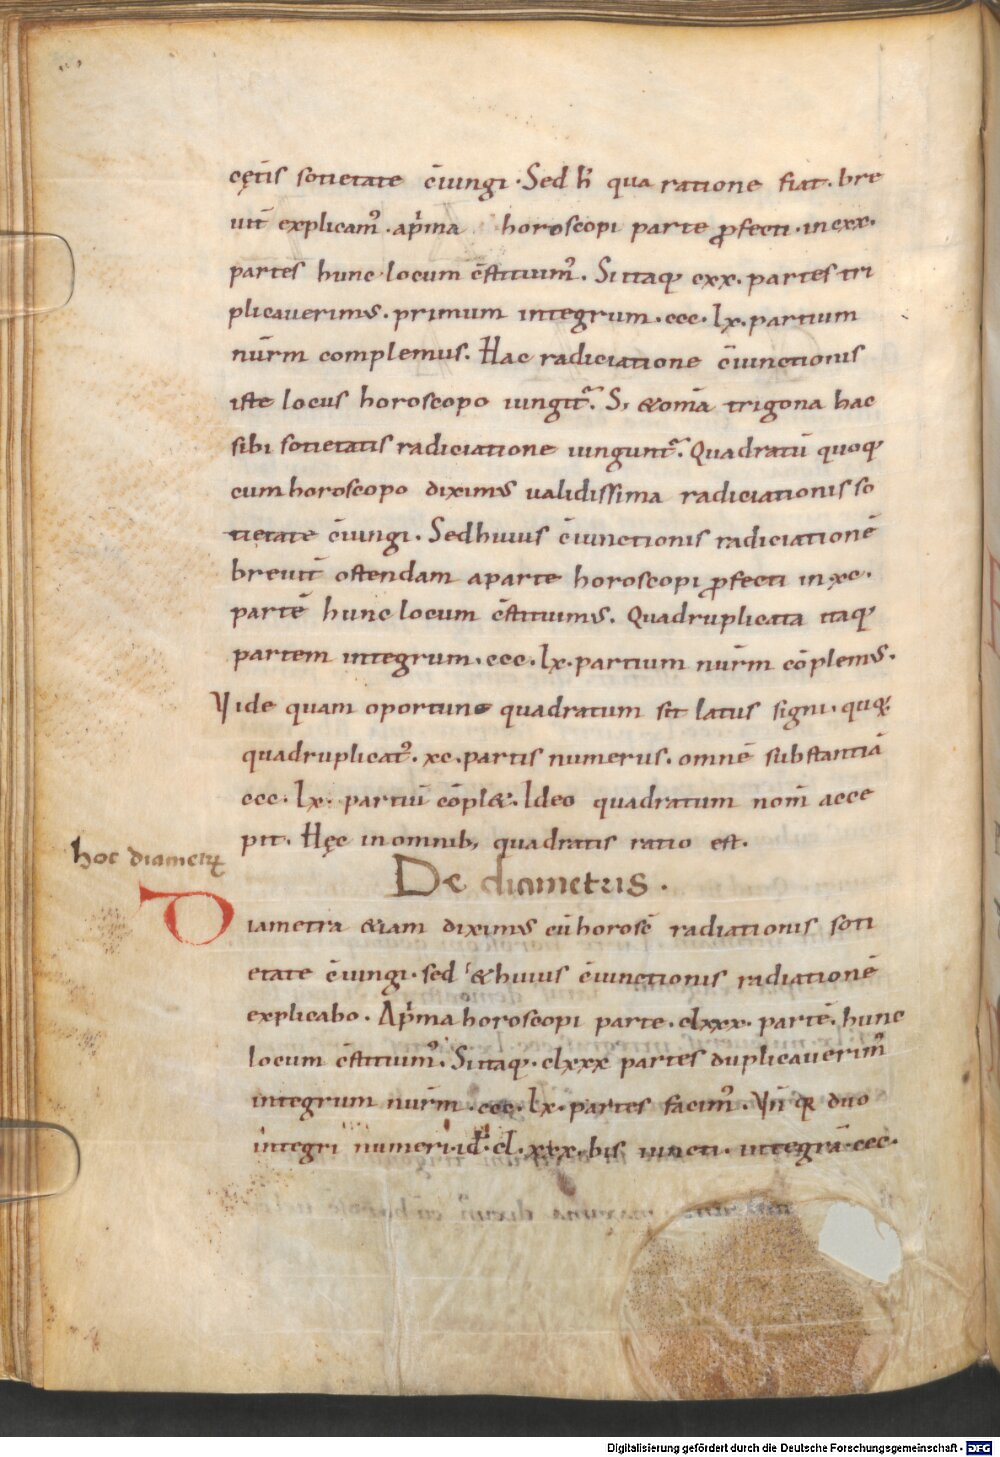 cętis sotietate c̄iungi · Sed h̄ qua ratione fiat. bre
uit̄ explicam᷒. ap̄ma horoscopi parte ꝓfecti · in cxx.
partes hunc locum c̄stituim᷒. Si itaqꝫ cxx. partes tri
plicauerim᷒. primum integrum. ccc. lx. partium
num̄ complemus. Hac radiciatione c̄iunctionis
iste locus horoscopo iungit᷑. S; & om̄a trigona hac
sibi sotietatis radiciatione iungunt᷑. Quadratū quoqꝫ
cum horoscopo dixim᷒ ualidissima radiciationis so
tietate c̄iungi. Sed huius c̄iunctionis radiciationē
breuit̄ ostendam a parte horoscopi ꝓfecti in xc.
partē hunc locum c̄stituim᷒. Quadruplicata itaqꝫ
partem integrum. ccc. lx. partium num̄ cōplem᷒.
Vide quam oportune quadratum sit latus signi. quqꝫ
quadruplicat᷒. xc. partis numerus. omnē substantiā
ccc. lx. partiū cōpl&. Ideo quadratum nom̄ acce
pit. Hęc in omnib; quadratis ratio est.
hoc diametꝝ
De diametris.
Diametra &iam dixim᷒ cū horosc̄ radiationis soti
etate c̄iungi. sed & huius c̄iunctionis radiationē
explicabo. Ap̄ma horoscopi parte. clxxx. partē. hunc
locum c̄stituim᷒. Si itaqꝫ. clxxx partes duplicauerim᷒
integrum num̄. ccc. lx. partes facim᷒. Vn̄ qꝫ duo
integri numeri. id÷. cl. xxx. bis iuncti. integrā. ccc.
Digitalisierung gefördert durch die Deutsche Forschungsgemeinschaft - DFG